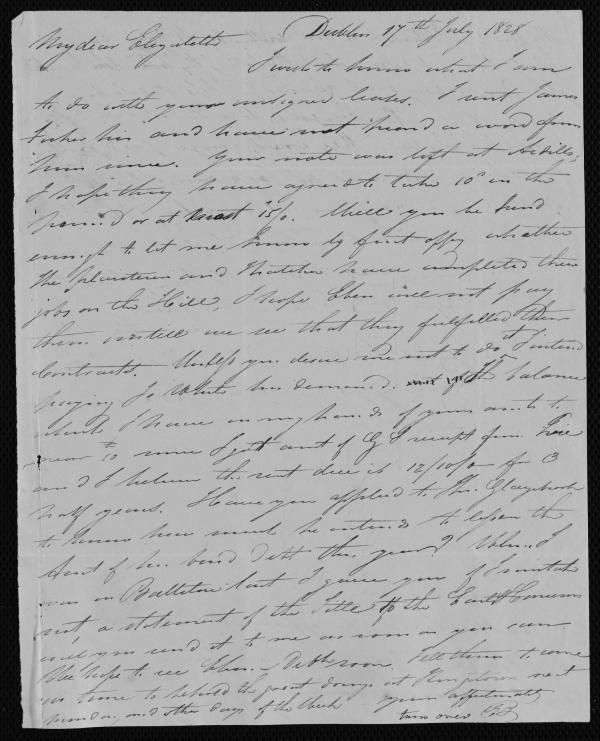 Dublin 17th July 1828
My dear Elizabeth
I wish to know what I am
to do with your unsigned leases. I sent James
his and have not heard a word from
him since. Your note was left at
I hope they have agreed to take 10s in the
pound or at least 15/0. Will you be kind
enough to let me know by first oppy whether
the Plasterer and Thatcher have completed their
jobs on the Hill, I hope Eben will not pay
them untill we see that they fulfilled their
Contracts. Unless you desire me not to do it I intend
paying Jo White his demand. out of the balance
which I have in my hands of yours as it is
near to me I get out of G S receipt from
and I believe the rent due is 12/10/0 for 3
half years. Have you applied to Thos.
to know how much he intends to lessen the
Amt of his bond Debt this year? When I
was in Ballitore last I gave you if I mistake
not, a statement of the Title to the Concerns
will you send it to me as soon as you can
We hope to see Eben & Deb soon. Tell them to come
in time to behold the great doings at next
monday and other days of the Week
your affectionately
turn over